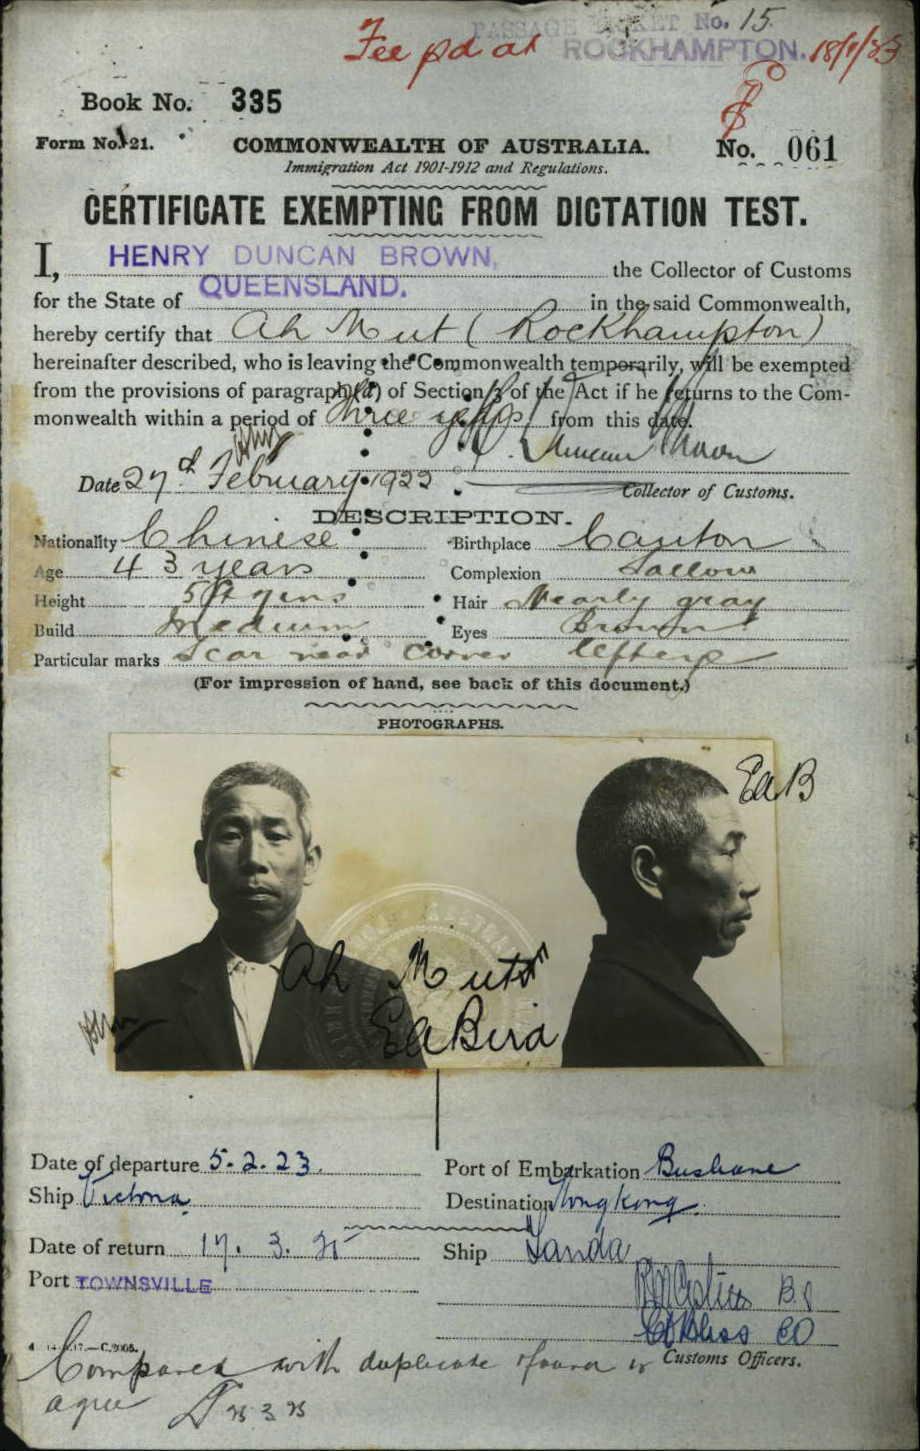 PASSAGE TICKET No. 15
Fee pd at ROCKHAMPTON. 18/1/23
Book No. 335
Form No. 21. COMMONWEALTH OF AUSTRALIA. No. 061
Immigration Act 1901-1912 and Regulations.
CERTIFICATE EXEMPTING FROM DICTATION TEST.
I, HENRY DUNCAN BROWN, the Collector of Customs
for the State of QUEENSLAND. in the said Commonwealth,
hereby certify that Ah Mut (Rockhampton)
hereinafter described, who is leaving the Commonwealth temporarily, will be exempted
from the provisions of paragraph (a) of Section 3 of the Act if he returns to the Com-
monwealth within a period of three years from this date.
Date 27th February 1922
Collector of Customs.
DESCRIPTION.
Nationality Chinese Birthplace Canton
Age 43 years Complexion Sallow
Height 5ft 9ins Hair Nearly gray
Build Medium Eyes Brown
Particular marks Scar near corner left eye
(For impression of hand, see back of this document.)
PHOTOGRAPHS.
EAB
Ah Mut
EA Bird
Date of departure 5.2.23. Port of Embarkation Brisbane
Ship Victoria Destination Hong Kong.
Date of return 17. 3. 25 Ship Tanda
Port TOWNSVILLE
Customs Officers.
Compared with duplicate found to
agree